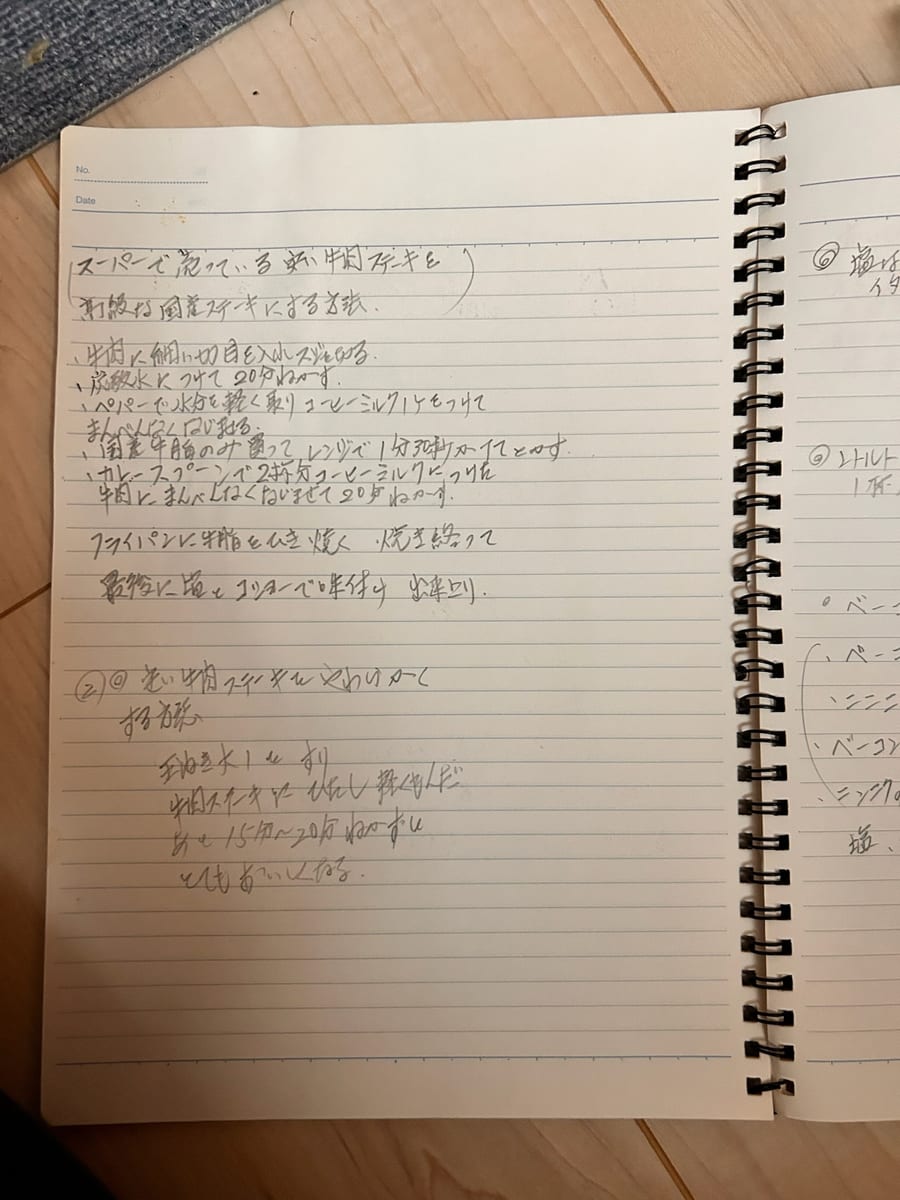 No.
Date
(スーパーで売っている安い牛肉ステーキを
高級な国産ステーキにする方法)
、牛肉に細い切目を入れスジを切る.
、炭酸水につけて20分ねかす.
、ペパーで水分を軽く取りコーヒーミルク1ケをつけて
まんべんなくなじませる.
、国産牛脂のみ買ってレンジで1分30秒かけてとかす
、カレースプーンで2杯分コーヒーミルクにつけた
牛肉にまんべんなくなじませて20分ねかす.
フライパンに牛脂をひき焼く 焼き終って
最後に塩とコショーで味付け 出来上り.
② ◎ 安い牛肉ステーキをやわらかく
する方法
玉ねぎ大1をすり
牛肉ステーキにひたし軽くもんだ
あと15分~20分ねかすと
とてもおいしくなる.
⑥ 塩は
◎ レトルト
1杯
。ベーコ
、ベーコ
、ニンニ
、ベーコン
、ニンジン
塩、